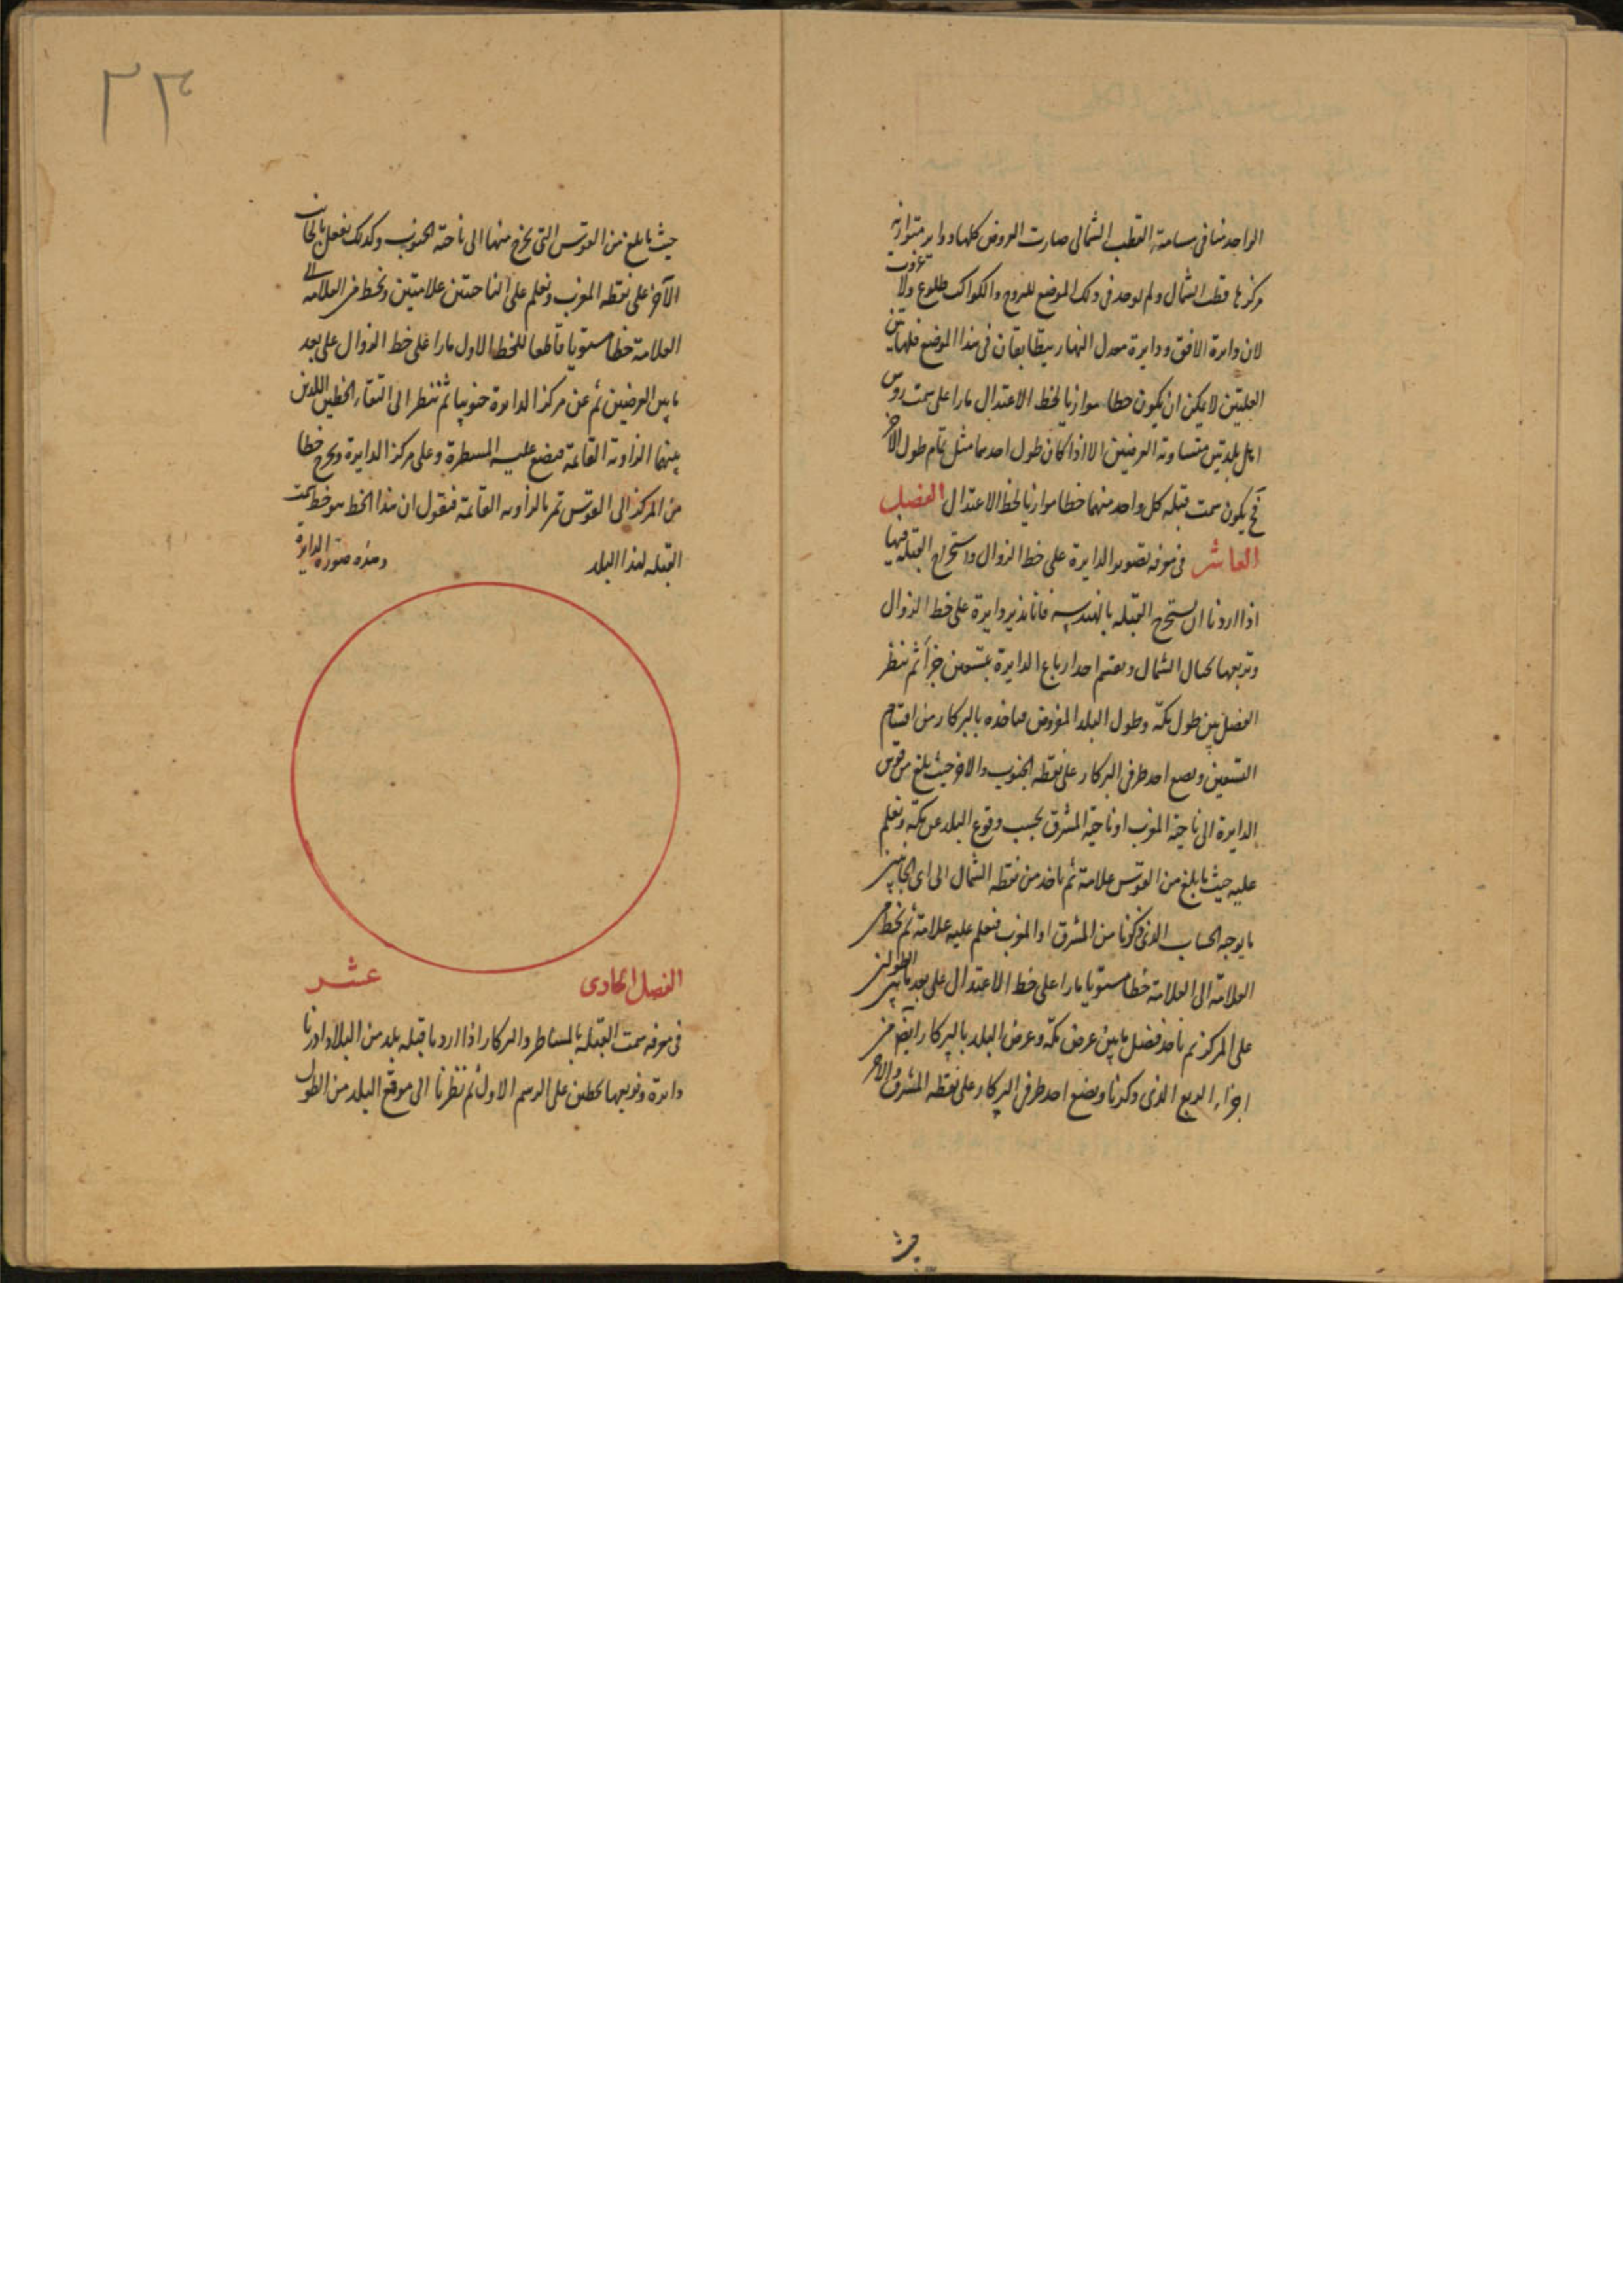 الواحد منا فى مسامتة القطب الشمالى صارت العروض كلها دواير متوازية
مركزها قطب الشمال ولم يوجد فى ذلك الموضع للبروج والكواكب طلوع ولا غروب
لان دايرة الافق ودايرة معدل النهار يتطابقان فى هذا الموضع فلهاتين
العلتين لا يمكن ان يكون خطا موازيا لخط الاعتدال مارا على سمت روس
اهل بلدتين متساوية العرضين الا اذا كان طول احدهما مثل تمام طول الآخر
فح يكون سمت قبلة كل واحد منهما خطا موازيا لخط الاعتدال الفصل
العاشر فى معرفة تصوير الدايرة على خط الزوال واستخراج القبلة فيها
اذا اردنا ان نستخرج القبلة بالهندسة فانا ندير دايرة على خط الزوال
وتربعها بحيال الشمال ونقسم احد ارباع الدايرة بتسعين جزأ ثم ننظر
الفضل بين طول مكة وطول البلد المفروض فناخذه بالبركار من اقسام
التسعين ونضع احد طرفى البركار على نقطة الجنوب والاخر حيث بلغ من قوس
الدايرة الى ناحية المغرب او ناحية المشرق بحسب وقوع البلد عن مكة ونعلم
عليه حيث ما بلغ من القوس علامة ثم ناخذ من نقطة الشمال الى اى الجانبين
ما يوجبه الحساب الذى ذكرنا من المشرق او المغرب فنعلم عليه علامة ثم نخط من
العلامة الى العلامة خطا مستويا مارا على خط الاعتدال على بعد ما بين الطولين
على المركز ثم ناخذ فضل ما بين عرض مكة وعرض البلد بالبركار ايضا من
اجزاء الربع الذى ذكرنا ونضع احد طرفى البركار على نقطة المشرق والاخر
حيث
٣٣
حيث ما بلغ من القوس التى يخرج منها الى ناحية الجنوب وكذلك نفعل بالجانب
الآخر على نقطة المغرب ونعلم على الناحيتين علامتين ونخط من العلامة الى
العلامة خطا مستويا قاطعا للخط الاول مارا على خط الزوال على بعد
ما بين العرضين ثم عن مركز الدايرة جنوبيا ثم ننظر الى التقاء الخطين اللذين
بينهما الزاوية القائمة فنضع عليه المسطرة وعلى مركز الدايرة ونخرج خطا
من المركز الى القوس تمر بالزاوية القائمة فنقول ان هذا الخط هو خط سمت
القبلة لهذا البلد وهذه صورة الدايرة
الفصل الحادى عشر
فى معرفة سمت القبلة بالمساطر والبركار اذا اردنا قبلة بلد من البلاد ادرنا
دايرة وتربعها بخطين على الرسم الاول ثم نظرنا الى موقع البلد من الطول